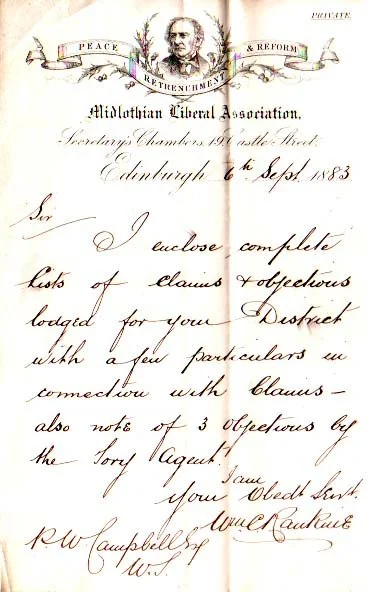 PRIVATE.
PEACE
& REFORM
RETRENCHMENT
Midlothian Liberal Association.
Secretary's Chambers, 19, Castle Street.
Edinburgh 6th Sept. 1883
Sir
I enclose complete
lists of claims & objections
lodged for your District
with a few particulars in
connection with Claims –
also note of 3 Objections by
the Tory Agent.
I am
your Obedt Servt.
Wm. C. Rankine
R. W. Campbell Esq
W.S.